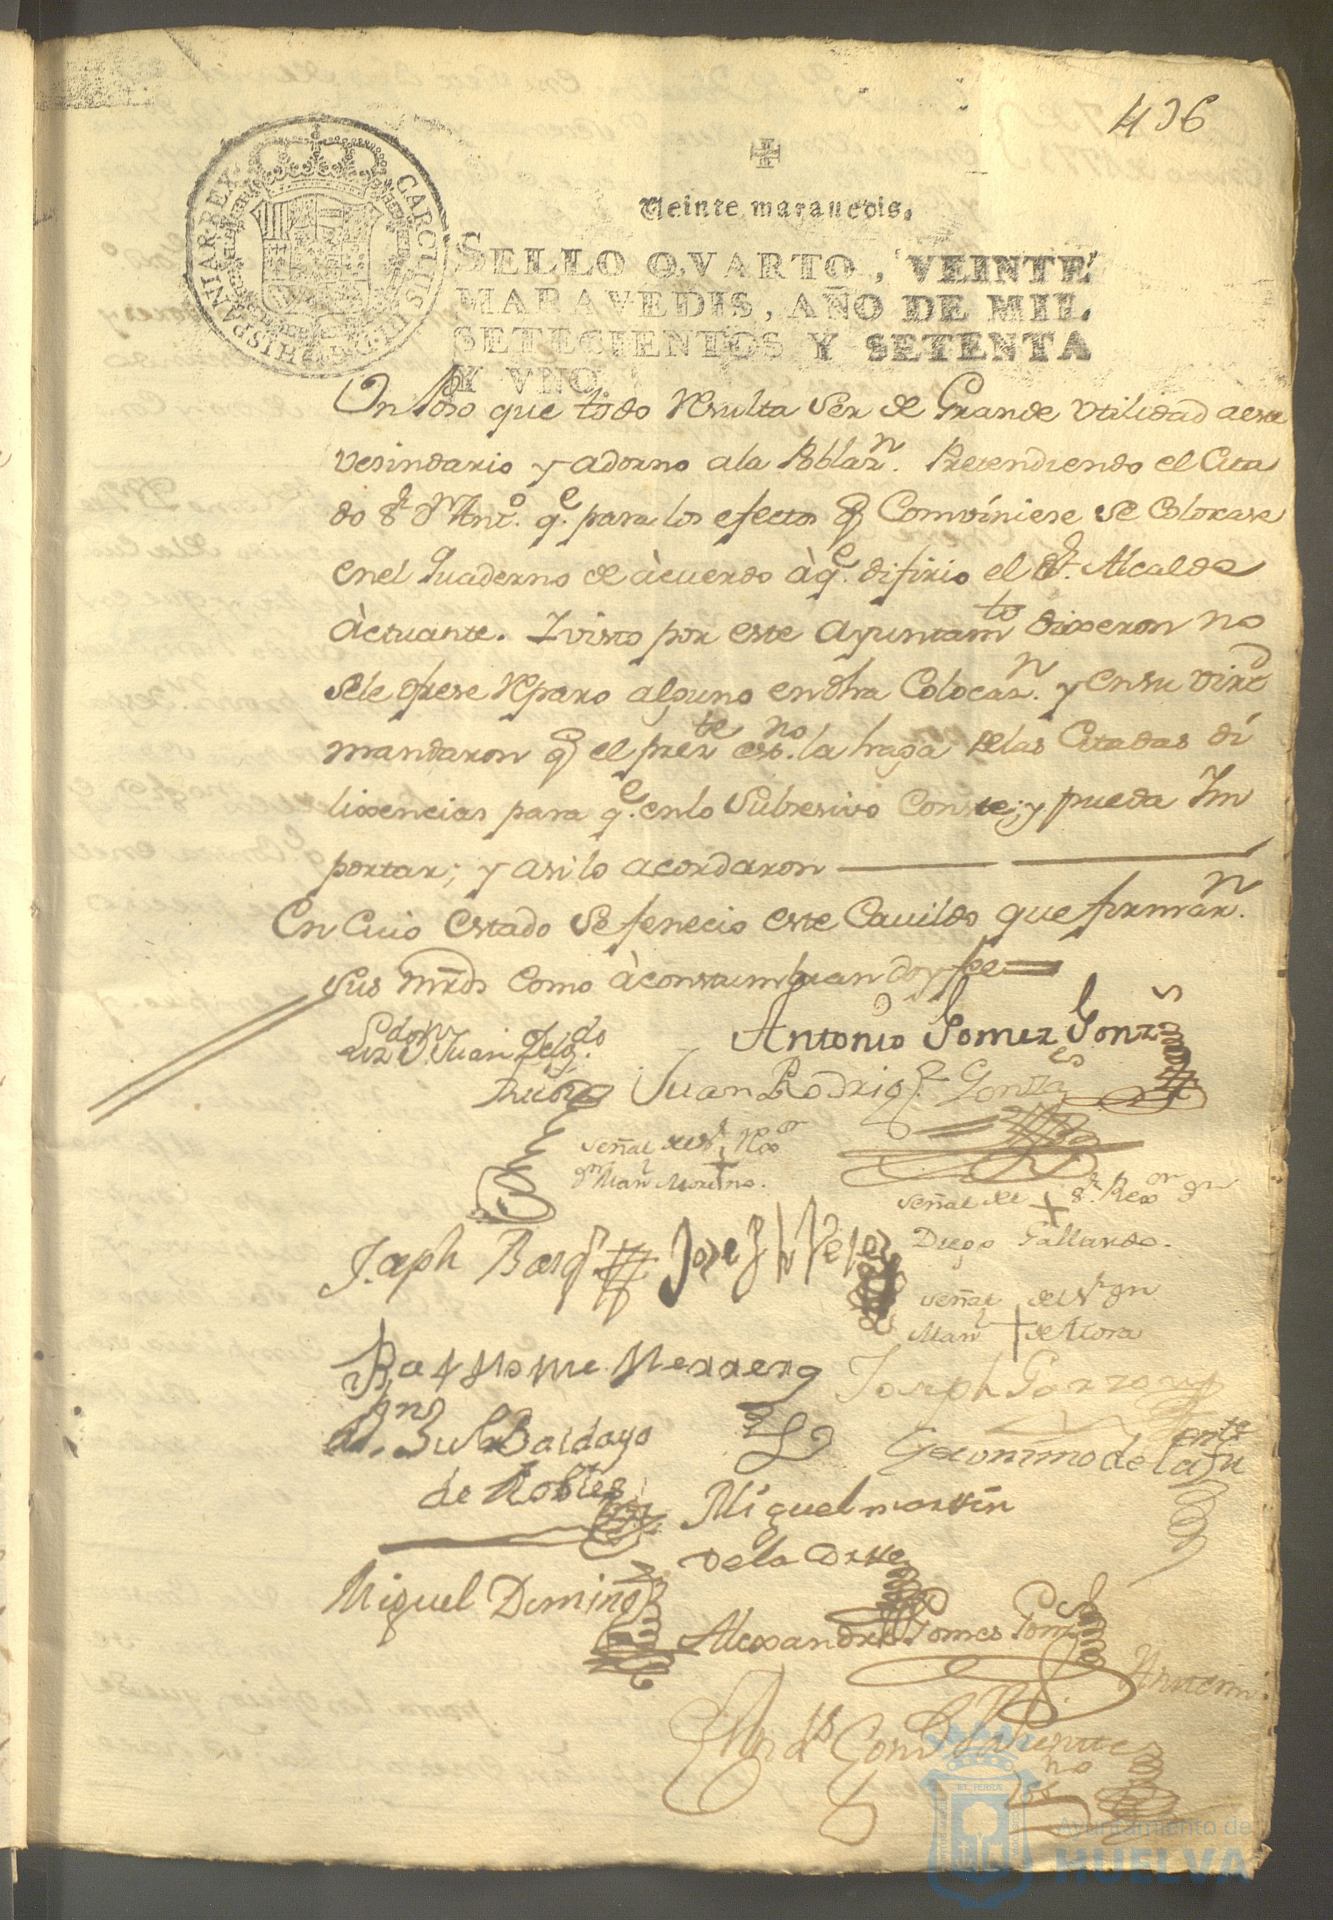 436
Veinte maravedis.
SELLO QVARTO, VEINTE
MARAVEDIS, AÑO DE MIL
SETECIENTOS Y SETENTA
Y VNO.
CAROLUS III D G HISPANIAR REX
que todo resulta ser de Grande Vtilidad a este
vesindario y adorno a la Poblazn. Pretendiendo el Cita
do Sr. Dn Anto. qe. para los efectos q Comviniese se Colocase
en el Quaderno de àcuerdo à qe. difirio el Sr. Alcalde
Àctuante. I visto por este Ayuntamto dixeron no
se le ofrese reparo alguno en dha Colocazn. y en su virtd
mandaron q el preste esno. la haga de las Citadas di
lixencias para qe. en lo Subsesivo Conste; y pueda Im
portar; y asi lo acordaron
En Cuio estado se fenecio este Cavildo que firmarn.
sus mrds como àcostumbran doy fee
Lizdo Dn Juan Delgdo.
Antonio Gomez Gonzs
Juan Rodrigz Gonzales
Señal del Sr. Rexor
Dn Manl Moreno.
Señal del Sr. Rexor Dn
Diego Gallardo.
Joseph Barqr
Jose Vélez
Señal del Sr Dn
Manl de Mora
Bartholome Herrero
Joseph Garzon
Dn Baldayo
de Robles
Geronimo de la Fuente
Miguel martin
de la Corte
Miguel Domin
Alexandro Gomes Gonzs
Ante mi
Valiente
no
Ayuntamiento de
HUELVA